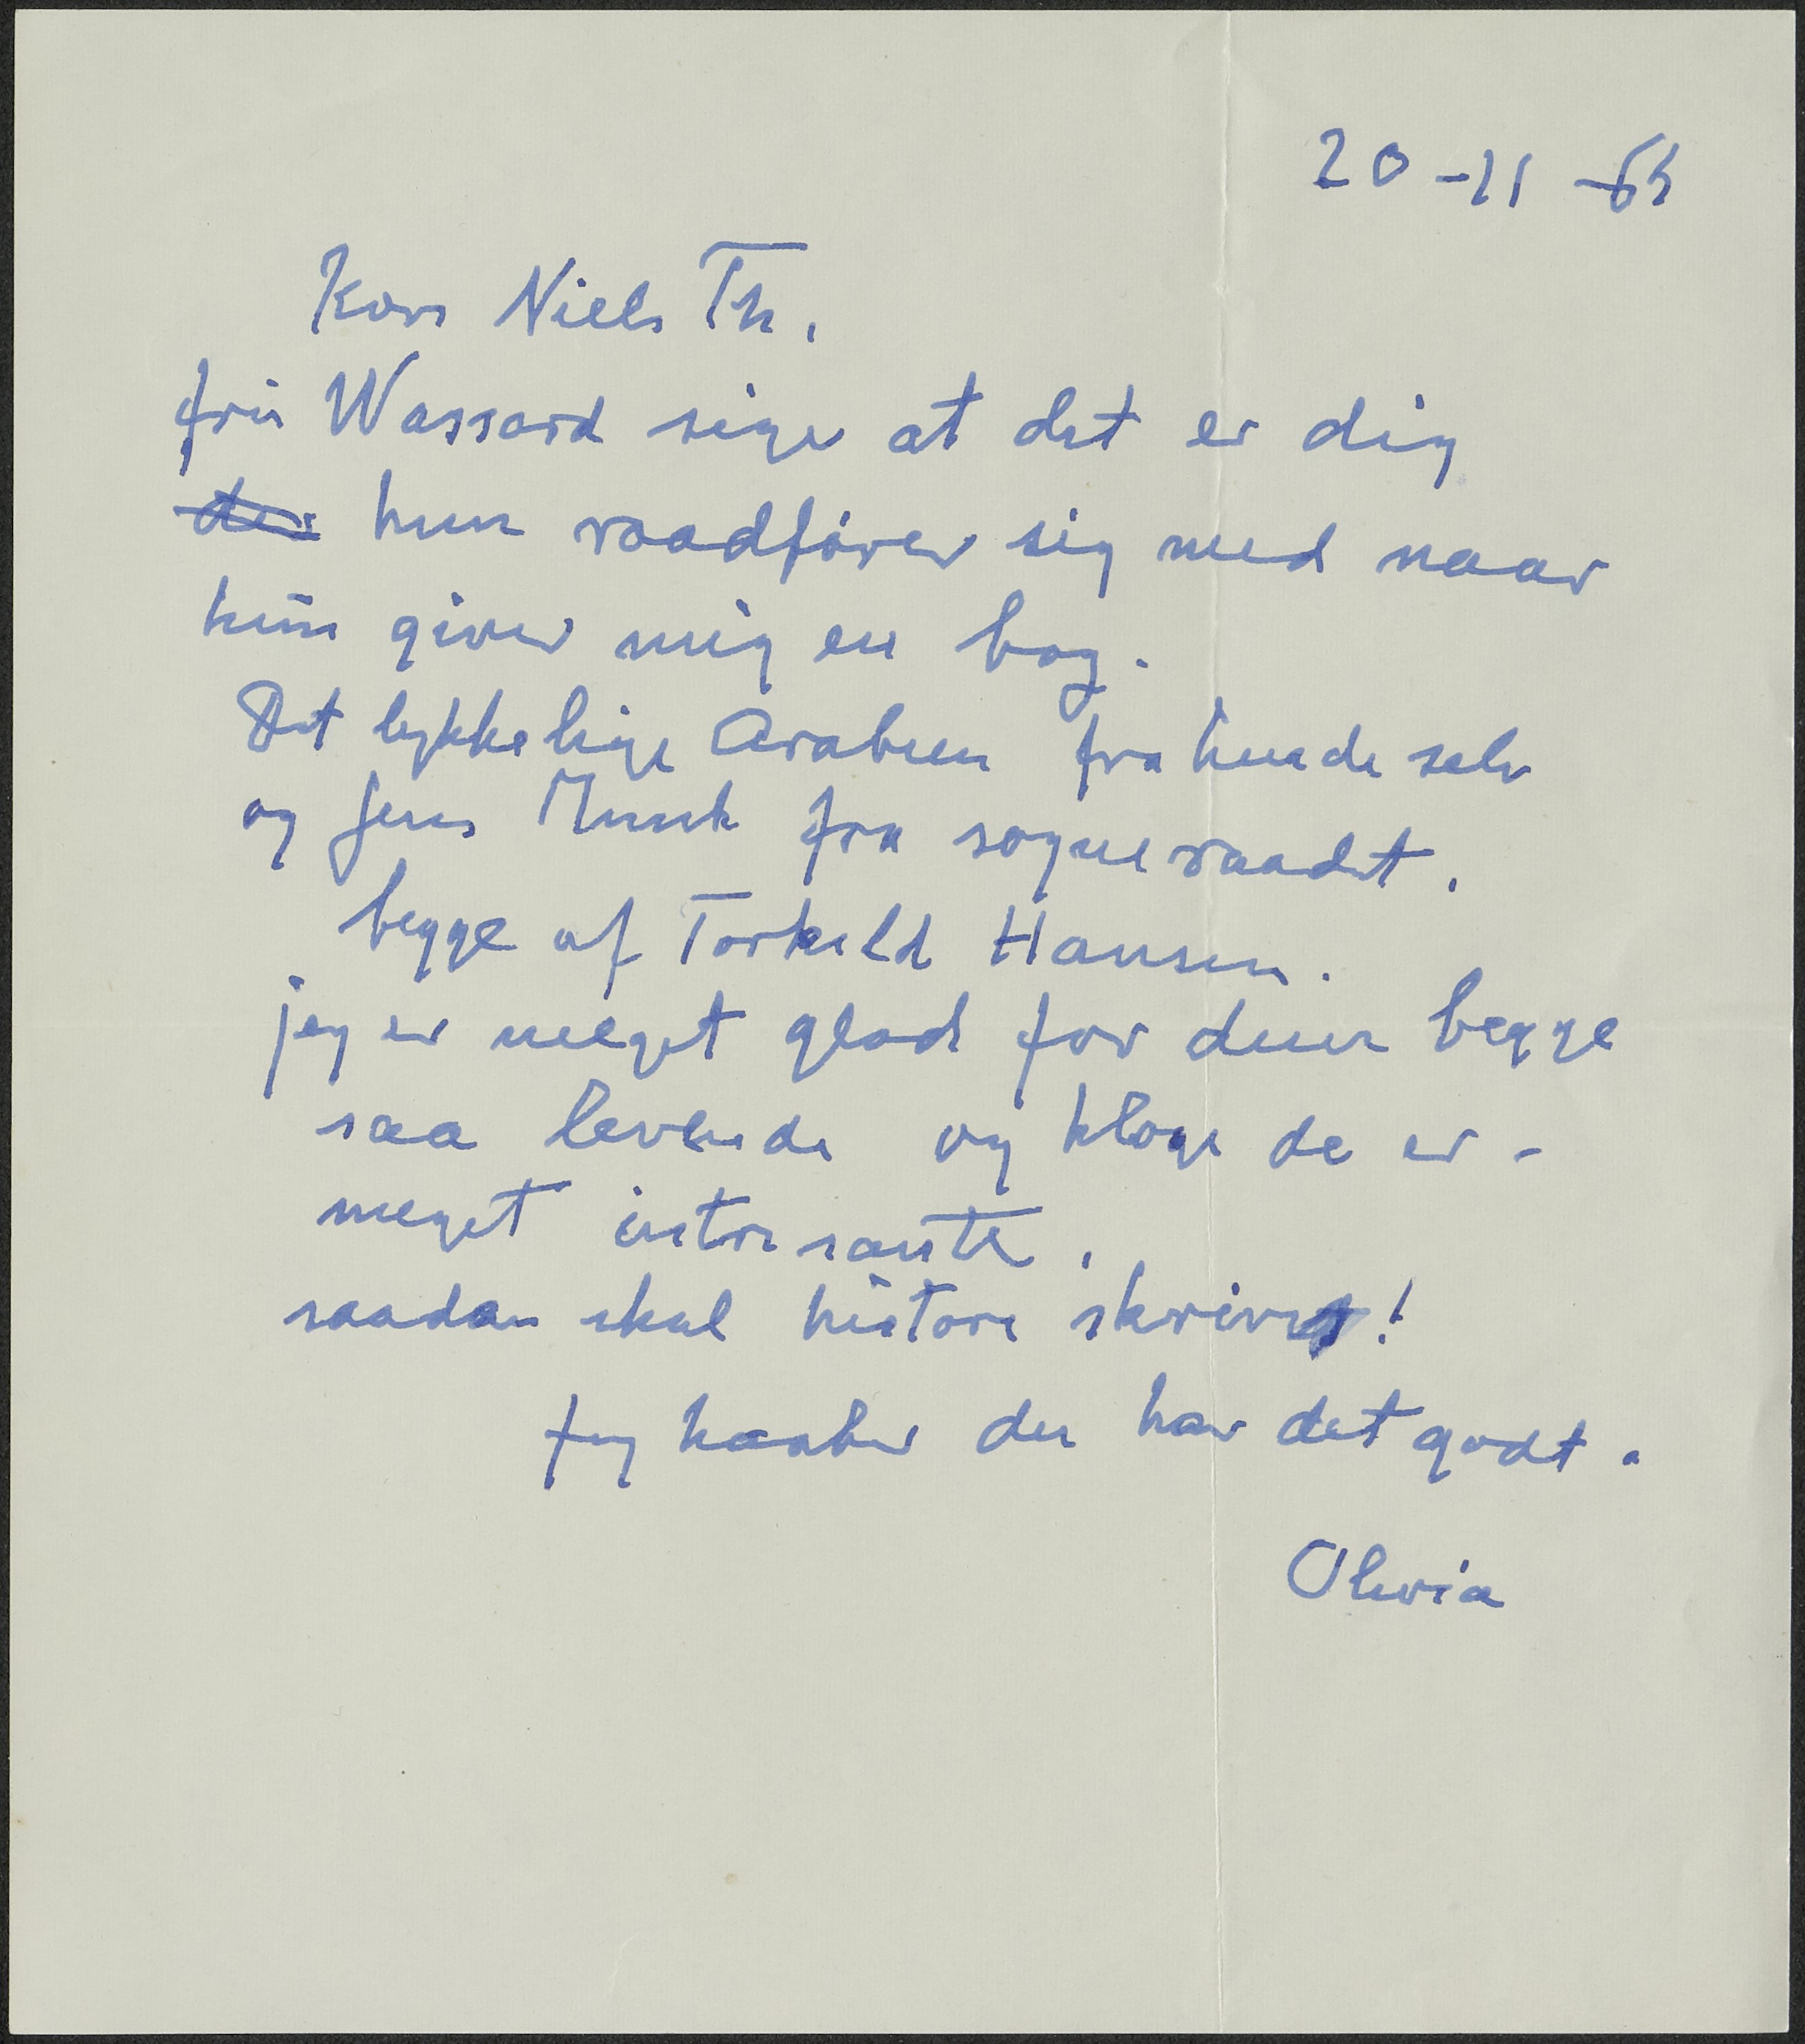 20-11-65
Kære Niels Th.
frú Wassard siger at det er dig
der hun raadfører sig med naar
hun giver mig en bog.
Det lykkelige Arabien fra hende selv
og Jens Munk fra sogneraadet.
begge af Torkild Hansen.
jeg er meget glad for dem begge
saa levende og kloge de er -
meget intresante.
saadan skal historie skrives!
Jeg haaber du har det godt.
Olivia